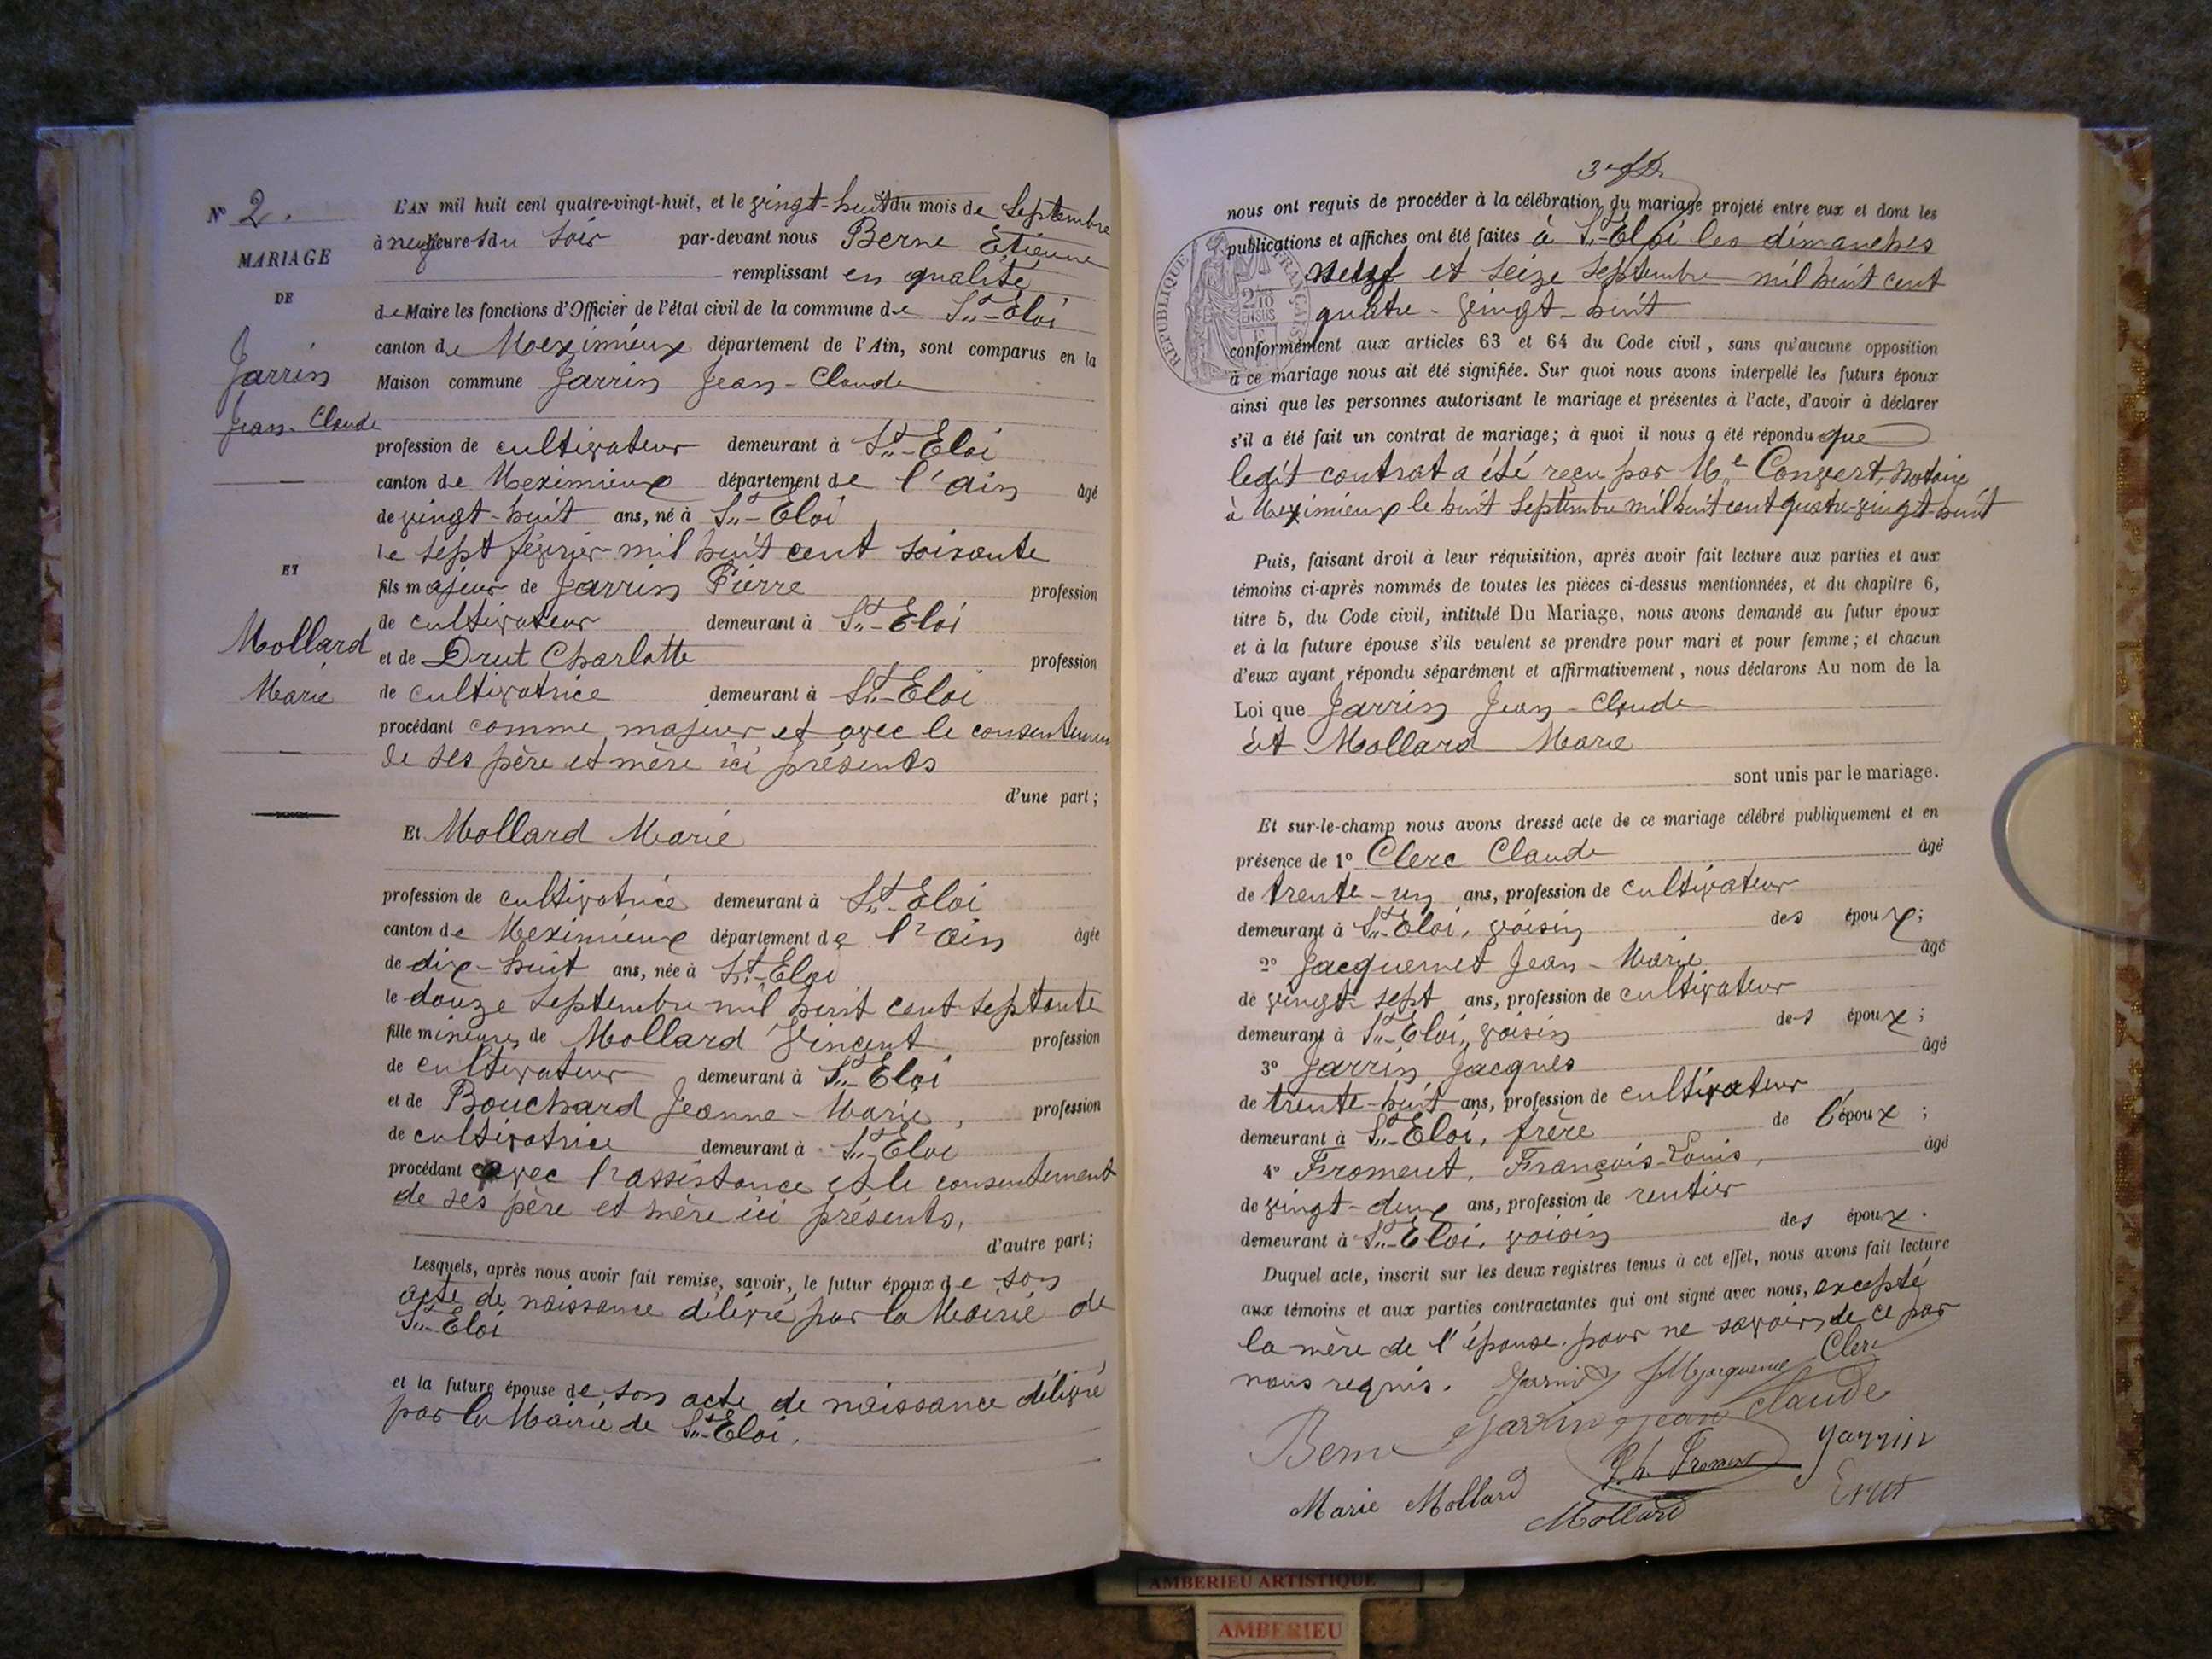 N° 2.
MARIAGE
DE
Jarrin
Jean-Claude
ET
Mollard
Marie
L'AN mil huit cent quatre-vingt-huit, et le vingt-huit du mois de Septembre
à neuf heures du soir par-devant nous Berne Etienne
remplissant en qualité
de Maire les fonctions d'Officier de l'état civil de la commune de St-Eloi
canton de Meximieux département de l'Ain, sont comparus en la
Maison commune Jarrin Jean-Claude
profession de cultivateur demeurant à St-Eloi
canton de Meximieux département de l'ain âgé
de vingt-huit ans, né à St-Eloi
le sept février mil huit cent soixante
fils majeur de Jarrin Pierre profession
de cultivateur demeurant à St-Eloi
et de Drut Charlotte profession
de cultivatrice demeurant à St-Eloi
procédant comme majeur et avec le consentement
de ses père et mère ici présents
d'une part;
Et Mollard Marie
profession de cultivatrice demeurant à St-Eloi
canton de Meximieux département de l'ain âgée
de dix-huit ans, née à St-Eloi
le douze Septembre mil huit cent septante
fille mineure de Mollard Vincent profession
de cultivateur demeurant à St-Eloi
et de Bouchard Jeanne-Marie, profession
de cultivatrice demeurant à St-Eloi
procédant avec l'assistance et le consentement
de ses père et mère ici présents,
d'autre part;
Lesquels, après nous avoir fait remise, savoir, le futur époux de son
acte de naissance délivré par la Mairie de
St-Eloi
et la future épouse de son acte de naissance délivré
par la Mairie de St-Eloi.
nous ont requis de procéder à la célébration du mariage projeté entre eux et dont les
publications et affiches ont été faites à St-Eloi les dimanches
neuf et seize Septembre mil huit cent
quatre-vingt-huit
conformément aux articles 63 et 64 du Code civil, sans qu'aucune opposition
à ce mariage nous ait été signifiée. Sur quoi nous avons interpellé les futurs époux
ainsi que les personnes autorisant le mariage et présentes à l'acte, d'avoir à déclarer
s'il a été fait un contrat de mariage; à quoi il nous a été répondu que
ledit contrat a été reçu par Me Convert, notaire
à Meximieux le huit Septembre mil huit cent quatre-vingt-huit
Puis, faisant droit à leur réquisition, après avoir fait lecture aux parties et aux
témoins ci-après nommés de toutes les pièces ci-dessus mentionnées, et du chapitre 6,
titre 5, du Code civil, intitulé Du Mariage, nous avons demandé au futur époux
et à la future épouse s'ils veulent se prendre pour mari et pour femme; et chacun
d'eux ayant répondu séparément et affirmativement, nous déclarons Au nom de la
Loi que Jarrin Jean-Claude
et Mollard Marie
sont unis par le mariage.
Et sur-le-champ nous avons dressé acte de ce mariage célébré publiquement et en
présence de 1° Clerc Claude âgé
de trente-un ans, profession de cultivateur
demeurant à St-Eloi, voisin des époux;
2° Jacquemet Jean-Marie âgé
de vingt-sept ans, profession de cultivateur
demeurant à St-Eloi, voisin des époux;
3° Jarrin Jacques âgé
de trente-huit ans, profession de cultivateur
demeurant à St-Eloi, frère de l'époux;
4° Froment, François-Louis, âgé
de vingt-deux ans, profession de rentier
demeurant à St-Eloi, voisin des époux.
Duquel acte, inscrit sur les deux registres tenus à cet effet, nous avons fait lecture
aux témoins et aux parties contractantes qui ont signé avec nous, excepté
la mère de l'épouse pour ne savoir, de ce par
nous requis. Clerc
Claude
Berne Jarrin jean Jarrin
Froment
Marie Mollard Mollard
RÉPUBLIQUE FRANÇAISE
AMBERIEU ARTISTIQUE
AMBERIEU